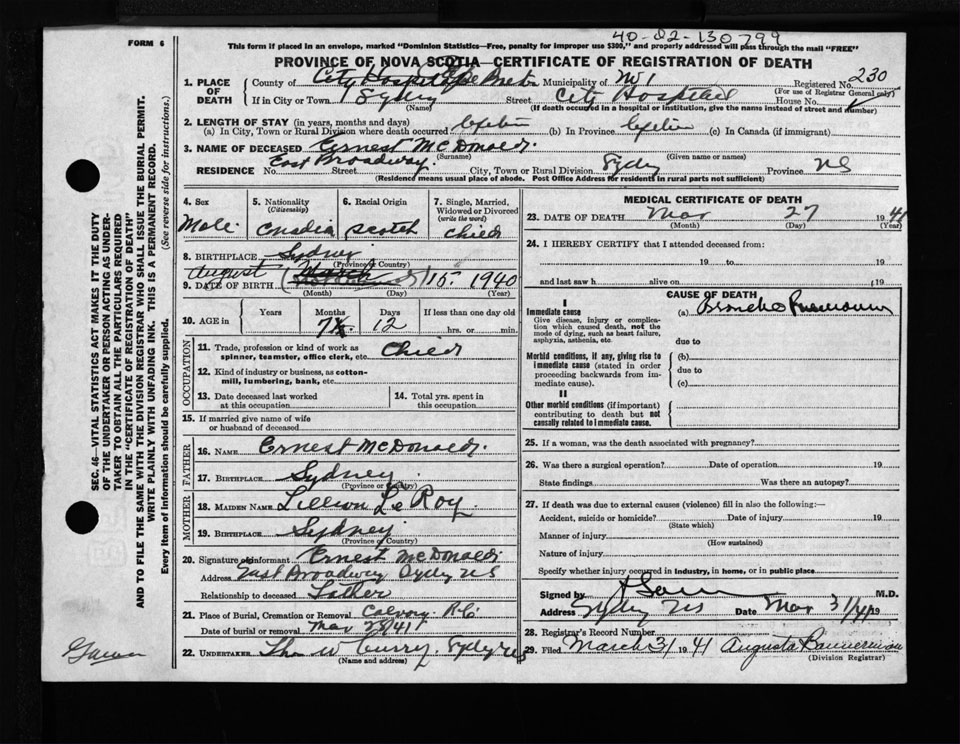 40-02-130799
FORM 6
This form if placed in an envelope, marked "Dominion Statistics—Free, penalty for improper use $300," and properly addressed will pass through the mail "FREE"
PROVINCE OF NOVA SCOTIA—CERTIFICATE OF REGISTRATION OF DEATH
1. PLACE OF DEATH
County of City Hospital Cape Breton Municipality of No 1 Registered No. 230
(For use of Registrar General only)
If in City or Town Sydney Street City Hospital House No.
(Name) (If death occurred in a hospital or institution, give the name instead of street and number)
2. LENGTH OF STAY (in years, months and days)
(a) In City, Town or Rural Division where death occurred Lifetime (b) In Province Lifetime (c) In Canada (if immigrant)
3. NAME OF DECEASED Ernest McDonald.
(Surname) (Given name or names)
RESIDENCE No. East Broadway. Street City, Town or Rural Division Sydney Province NS
(Residence means usual place of abode. Post Office Address for residents in rural parts not sufficient)
4. Sex
Male
5. Nationality
(Citizenship)
Canadian
6. Racial Origin
Scotch
7. Single, Married, Widowed or Divorced
(write the word)
Child
8. BIRTHPLACE Sydney
(Province or Country)
9. DATE OF BIRTH August March 15. 1940
(Month) (Day) (Year)
10. AGE in
Years
Months
7
Days
12
If less than one day old
hrs. or min.
OCCUPATION
11. Trade, profession or kind of work as spinner, teamster, office clerk, etc. Child
12. Kind of industry or business, as cotton-mill, lumbering, bank, etc.
13. Date deceased last worked at this occupation
14. Total yrs. spent in this occupation
15. If married give name of wife or husband of deceased
FATHER
16. NAME Ernest McDonald.
17. BIRTHPLACE Sydney
(Province or Country)
MOTHER
18. MAIDEN NAME Lillian Le Roy
19. BIRTHPLACE Sydney
(Province or Country)
20. Signature of informant Ernest McDonald
Address East Broadway Sydney NS
Relationship to deceased Father
21. Place of Burial, Cremation or Removal Calvary R.C.
Date of burial or removal Mar 28/41
22. UNDERTAKER W Curry. Sydney NS
(Name and address)
MEDICAL CERTIFICATE OF DEATH
23. DATE OF DEATH Mar 27 1941
(Month) (Day) (Year)
24. I HEREBY CERTIFY that I attended deceased from:
19 to 19
and last saw h alive on 19
CAUSE OF DEATH
I
Immediate cause
Give disease, injury or complication which caused death, not the mode of dying, such as heart failure, asphyxia, asthenia, etc.
(a) Broncho Pneumonia
due to
Morbid conditions, if any, giving rise to immediate cause (stated in order proceeding backwards from immediate cause).
(b)
due to
(c)
II
Other morbid conditions (if important) contributing to death but not causally related to immediate cause.
25. If a woman, was the death associated with pregnancy?
26. Was there a surgical operation? Date of operation 19
State findings Was there an autopsy?
27. If death was due to external causes (violence) fill in also the following:—
Accident, suicide or homicide? Date of injury 19
(State which)
Manner of injury
(How sustained)
Nature of injury
Specify whether injury occurred in industry, in home, or in public place
Signed by M.D.
Address Sydney NS Date Mar 31/41 19
28. Registrar's Record Number
29. Filed March 31 1941 Augusta Bannerman
(Division Registrar)
SEC. 46—VITAL STATISTICS ACT MAKES IT THE DUTY
OF THE UNDERTAKER OR PERSON ACTING AS UNDER-
TAKER TO OBTAIN ALL THE PARTICULARS REQUIRED
IN THE "CERTIFICATE OF REGISTRATION OF DEATH"
AND TO FILE THE SAME WITH THE DIVISION REGISTRAR WHO SHALL ISSUE THE BURIAL PERMIT.
WRITE PLAINLY WITH UNFADING INK. THIS IS A PERMANENT RECORD.
Every item of information should be carefully supplied. (See reverse side for instructions.)